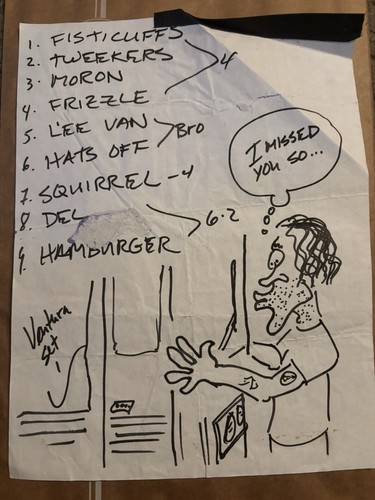 1. FISTICUFFS
2. TWEEKERS
3. MORON
4
4. FRIZZLE
5. LEE VAN
Bro
6. HATS OFF
7. SQUIRREL - 4
8. DEL
6·2
9. HAMBURGER
I MISSED
YOU SO...
Ventura
set